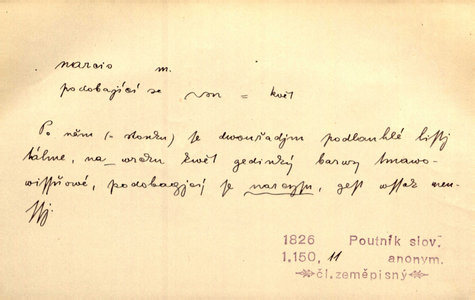 narcis m.
podobající se = květ
Po něm (= stonku) se dwouřadým podlauhlé listj
táhne, na wrchu kwět gedinký barwy tmawo-
wissňowé, podobagjcý se narcysu, gest wssak men-
ssj.
1826 Poutník slov.
1.150, 11 anonym.
čl. zeměpisný